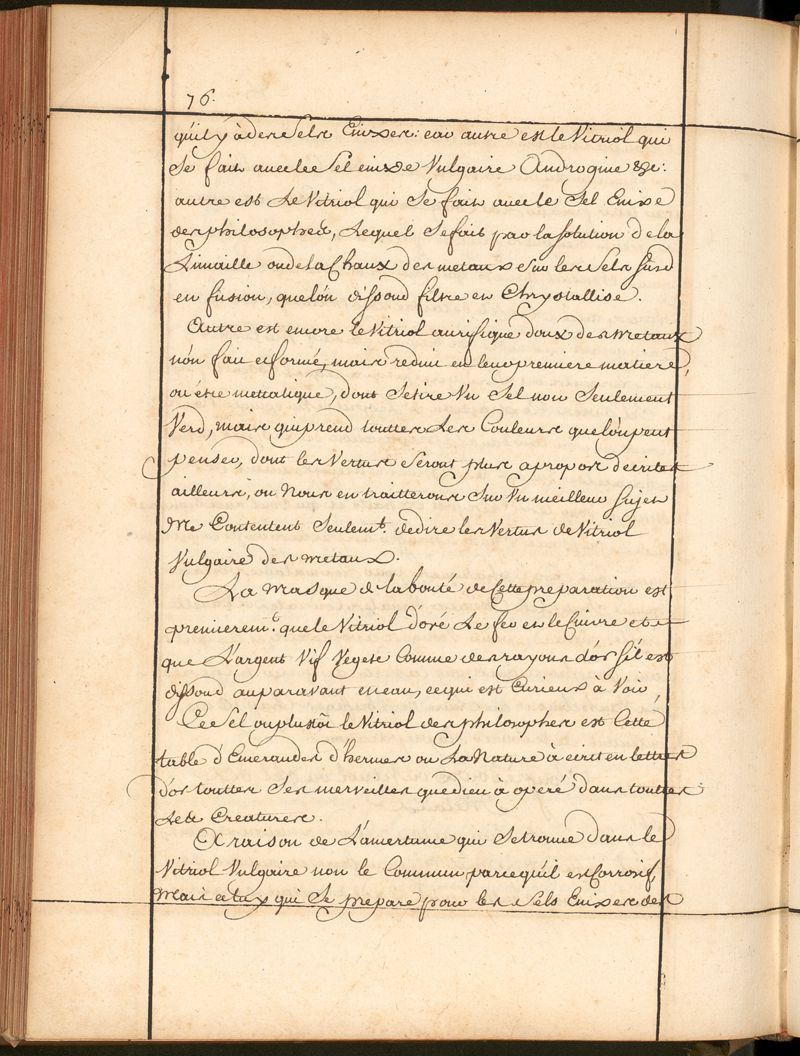 76.
qu'il y à des Sels Enixes: car autre est le Vitriol qui
se fait avec le Sel enixe Vulgaire Androgine &c:
autre est Le Vitriol qui Se fait avec le Sel Enixe
des philosophes, Lequel Se fait par la solution de la
Limaille ou de la Chaux des metaux Sur les Sels
en fusion, que lón dissoud filtre et Chrystallise.
Autre est encore le Vitriol aurifique doux des Metaux
nón fait et formé, mais reduit en leur premiere matiere,
ou être mettalique, dont Se tire Un Sel non Seulement
Verd, mais qui prend touttes Les Couleurs que lón peut
penser, dont les Vertus Seront plus apropos décrites
ailleurs, ou Nous en traitterons Sur Un meilleur Sujet
Me Contentent Seulemt. de dire les Vertus de Vitriol
Vulgaire des metaux.
La Marque de la bonté de Cette preparation est
premieremt. que le Vitriol doré Le fer et le Cuivre et
que L'argent Vif Vegete Comme des rayons d'or s'il est
dissoud auparavant en eau, ce qui est Curieux à Voir,
Ce Sel ou plustôt le Vitriol des philosophes est Cette
table d'Emeraudes d'hermes ou La Nature à écrit en lettres
d'or touttes Ses merveilles que dieu à operé dans touttes
Les Creatures.
A raison de L'amertume qui Se trouve dans le
Vitriol Vulgaire non le Commun parcequ'il est Corrosif,
Mais celuy qui Se prepare pour les Sels Enixes des